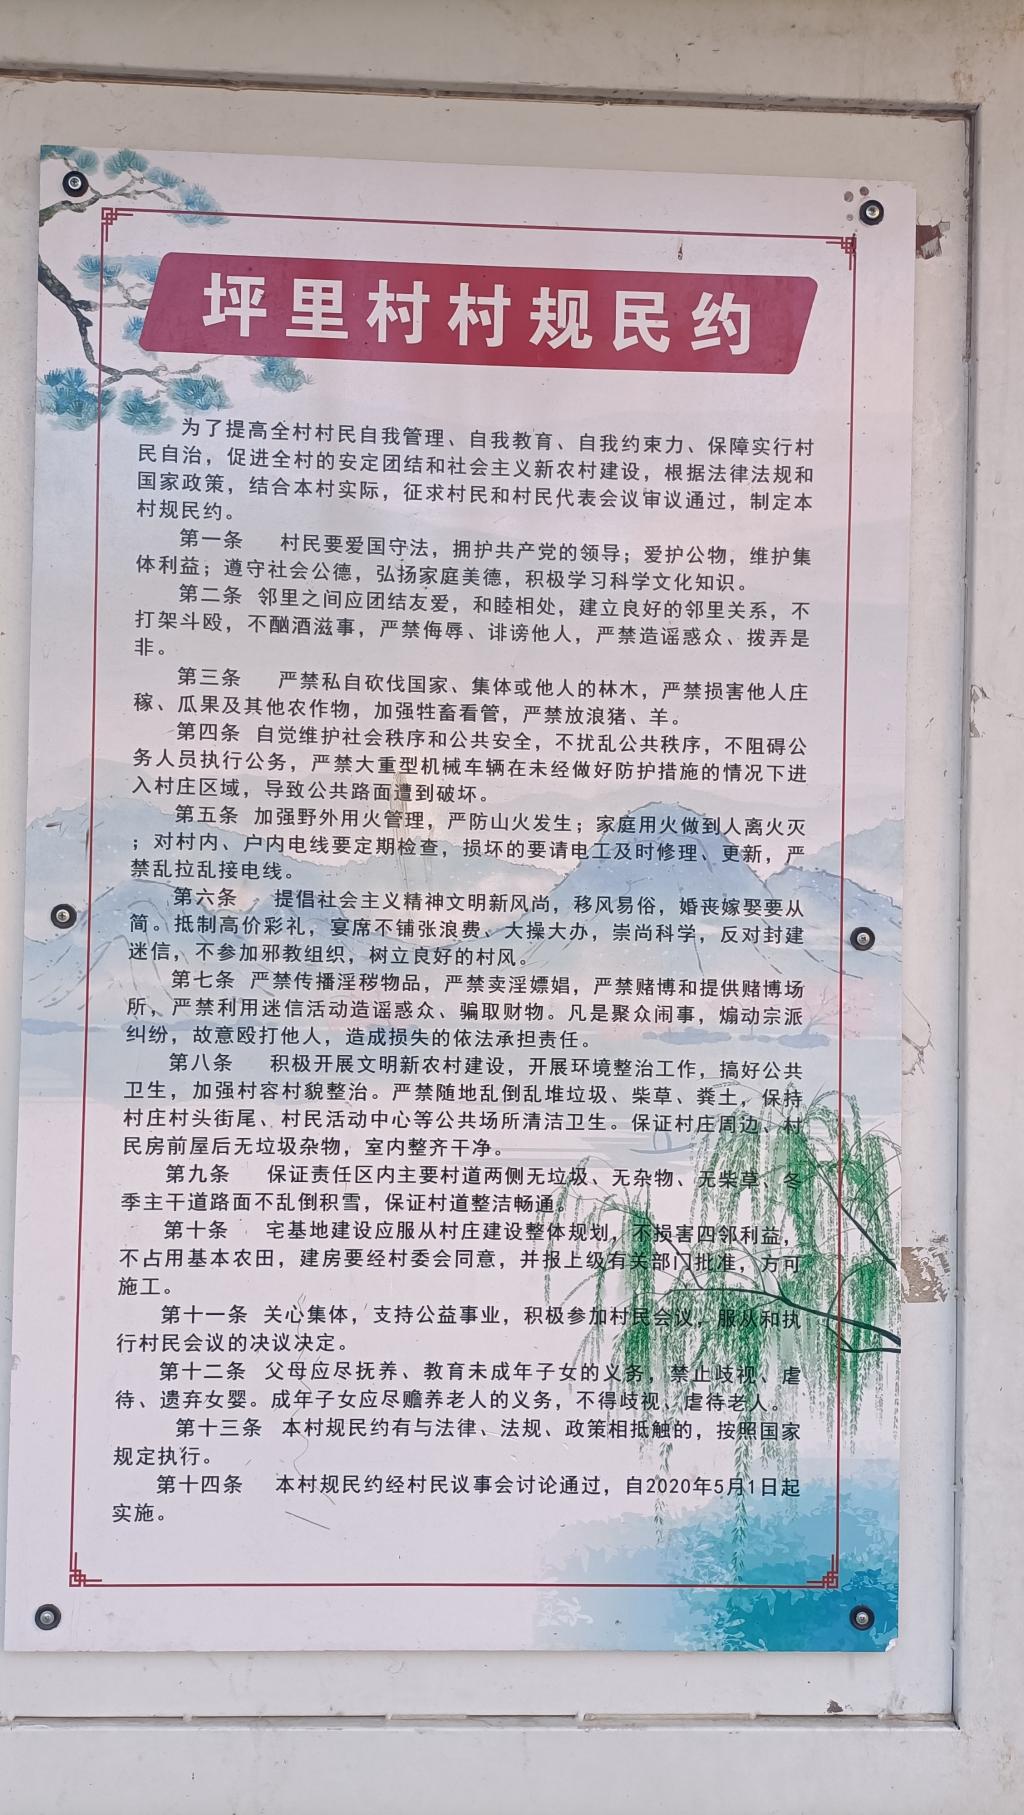 坪里村村规民约
为了提高全村村民自我管理、自我教育、自我约束力、保障实行村
民自治，促进全村的安定团结和社会主义新农村建设，根据法律法规和
国家政策，结合本村实际，征求村民和村民代表会议审议通过，制定本
村规民约。
第一条 村民要爱国守法，拥护共产党的领导；爱护公物，维护集
体利益；遵守社会公德，弘扬家庭美德，积极学习科学文化知识。
第二条 邻里之间应团结友爱，和睦相处，建立良好的邻里关系，不
打架斗殴，不酗酒滋事，严禁侮辱、诽谤他人，严禁造谣惑众、拨弄是
非。
第三条 严禁私自砍伐国家、集体或他人的林木，严禁损害他人庄
稼、瓜果及其他农作物，加强牲畜看管，严禁放浪猪、羊。
第四条 自觉维护社会秩序和公共安全，不扰乱公共秩序，不阻碍公
务人员执行公务，严禁大重型机械车辆在未经做好防护措施的情况下进
入村庄区域，导致公共路面遭到破坏。
第五条 加强野外用火管理，严防山火发生；家庭用火做到人离火灭
；对村内、户内电线要定期检查，损坏的要请电工及时修理、更新，严
禁乱拉乱接电线。
第六条 提倡社会主义精神文明新风尚，移风易俗，婚丧嫁娶要从
简。抵制高价彩礼，宴席不铺张浪费、大操大办，崇尚科学，反对封建
迷信，不参加邪教组织，树立良好的村风。
第七条 严禁传播淫秽物品，严禁卖淫嫖娼，严禁赌博和提供赌博场
所，严禁利用迷信活动造谣惑众、骗取财物。凡是聚众闹事，煽动宗派
纠纷，故意殴打他人，造成损失的依法承担责任。
第八条 积极开展文明新农村建设，开展环境整治工作，搞好公共
卫生，加强村容村貌整治。严禁随地乱倒乱堆垃圾、柴草、粪土，保持
村庄村头街尾、村民活动中心等公共场所清洁卫生。保证村庄周边、村
民房前屋后无垃圾杂物，室内整齐干净。
第九条 保证责任区内主要村道两侧无垃圾、无杂物、无柴草、冬
季主干道路面不乱倒积雪，保证村道整洁畅通。
第十条 宅基地建设应服从村庄建设整体规划，不损害四邻利益，
不占用基本农田，建房要经村委会同意，并报上级有关部门批准，方可
施工。
第十一条 关心集体，支持公益事业，积极参加村民会议，服从和执
行村民会议的决议决定。
第十二条 父母应尽抚养、教育未成年子女的义务，禁止歧视、虐
待、遗弃女婴。成年子女应尽赡养老人的义务，不得歧视、虐待老人。
第十三条 本村规民约有与法律、法规、政策相抵触的，按照国家
规定执行。
第十四条 本村规民约经村民议事会讨论通过，自2020年5月1日起
实施。